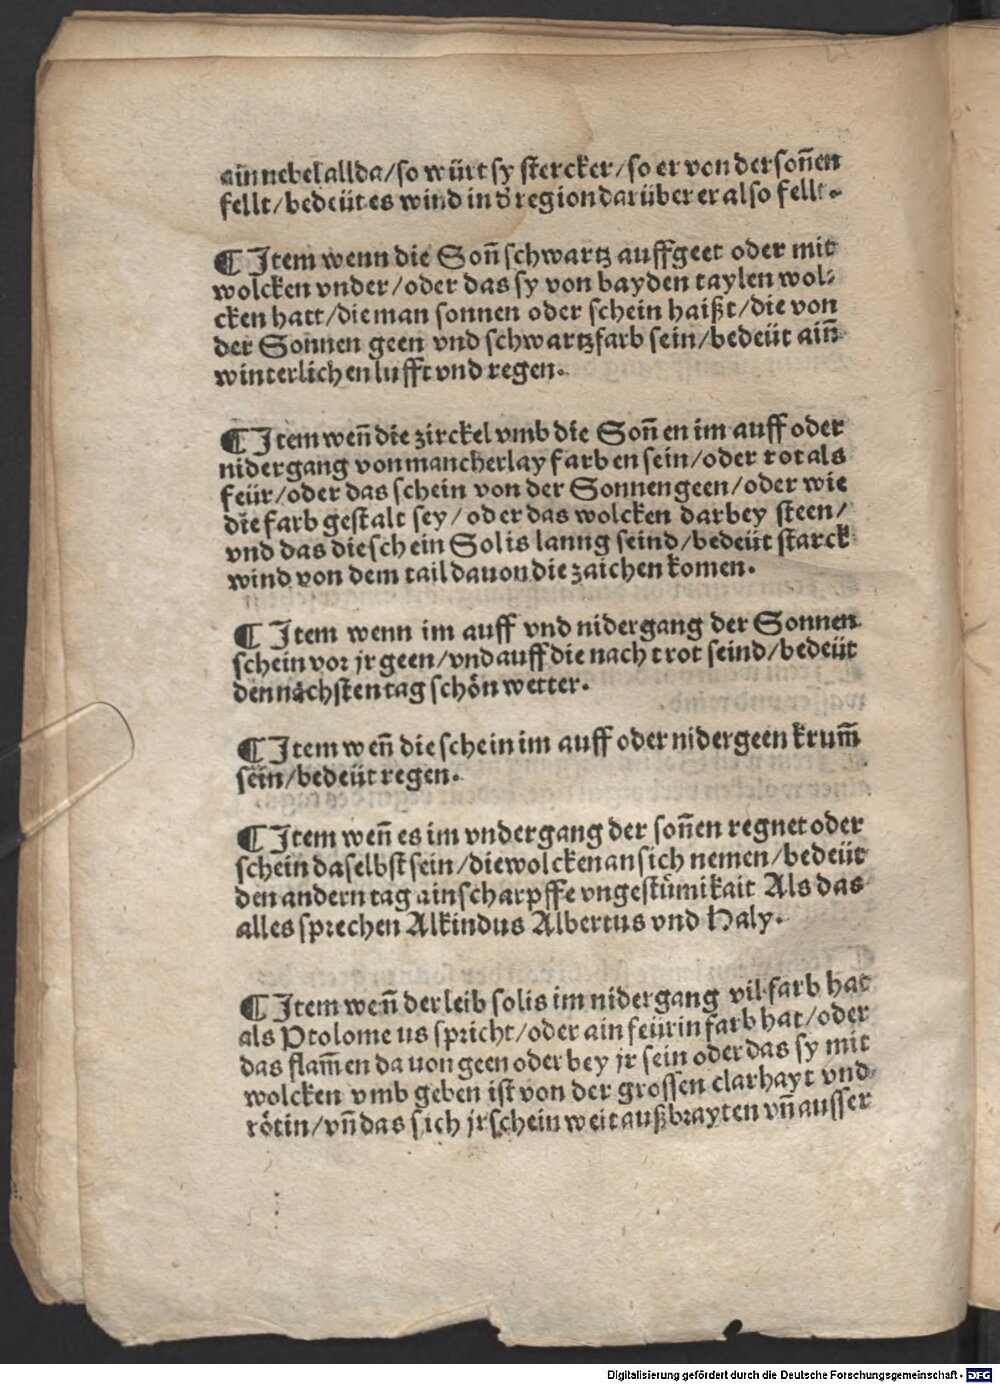 ain nebel allda/so würt sy stercker/so er von der soñen
fellt/bedeüt es wind in d' region darüber er also fellt.
¶ Item wenn die Soñ schwartz auffgeet oder mit
wolcken vnder/oder das sy von bayden taylen wol⸗
cken hatt/die man sonnen oder schein haißt/die von
der Sonnen geen vnd schwartzfarb sein/bedeüt aiñ
winterlichen lufft vnd regen.
¶ Item weñ die zirckel vmb die Soñen im auff oder
nidergang von mancherlay farben sein/oder rot als
feür/oder das schein von der Sonnen geen/oder wie
die farb gestalt sey/oder das wolcken darbey steen/
vnd das die schein Solis lanng seind/bedeüt starck
wind von dem tail dauon die zaichen komen.
¶ Item wenn im auff vnd nidergang der Sonnen
schein vor jr geen/vnd auff die nacht rot seind/bedeüt
den nächsten tag schön wetter.
¶ Item weñ die schein im auff oder nidergeen krum̃
sein/bedeüt regen.
¶ Item weñ es im vndergang der soñen regnet oder
schein daselbst sein/die wolcken an sich nemen/bedeüt
den andern tag ain scharpffe vngestümikait Als das
alles sprechen Alkindus Albertus vnd Haly.
¶ Item weñ der leib solis im nidergang vil farb hat
als Ptolomeus spricht/oder ain feürin farb hat/oder
das flam̃en dauon geen oder bey jr sein oder das sy mit
wolcken vmbgeben ist von der grossen clarhayt vnd
rötin/vñ das sich jr schein weit außbrayten vñ ausser
Digitalisierung gefördert durch die Deutsche Forschungsgemeinschaft - DFG